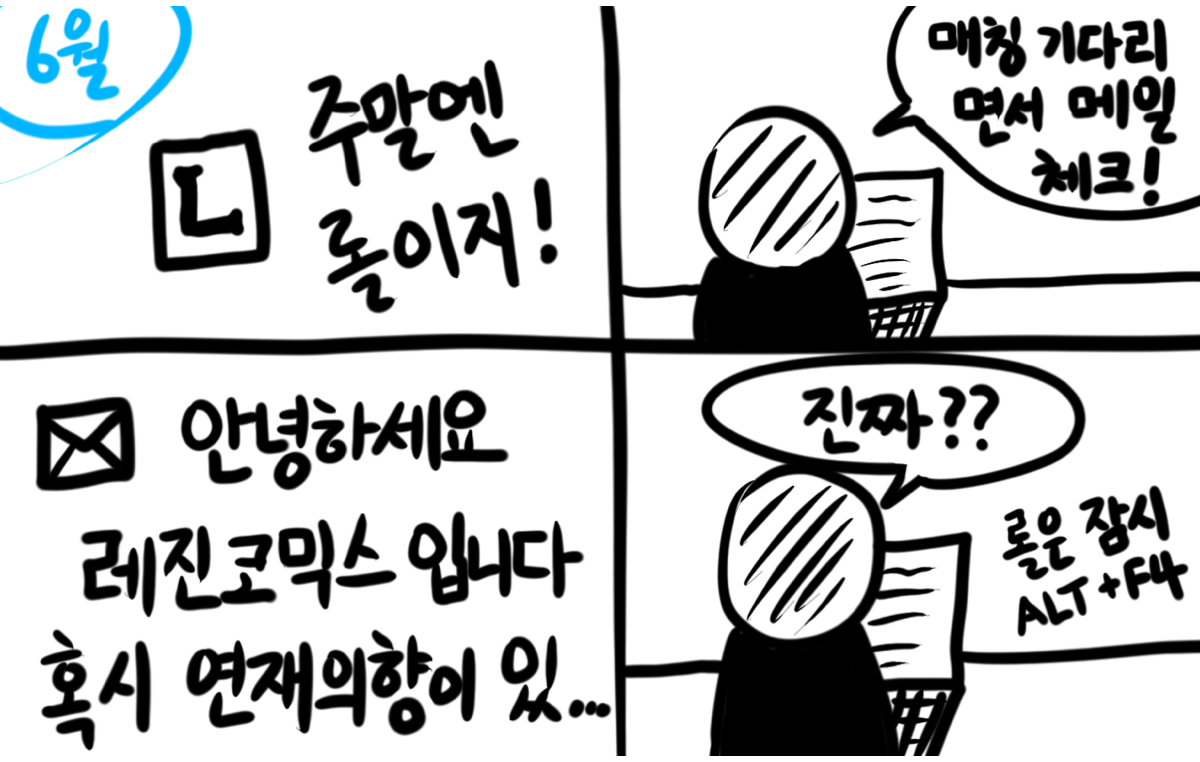 6월
L
주말엔
롤이지!
매칭 기다리
면서 메일
체크!
안녕하세요
레진코믹스 입니다
혹시 연재의향이 있...
진짜??
롤은 잠시
ALT+F4